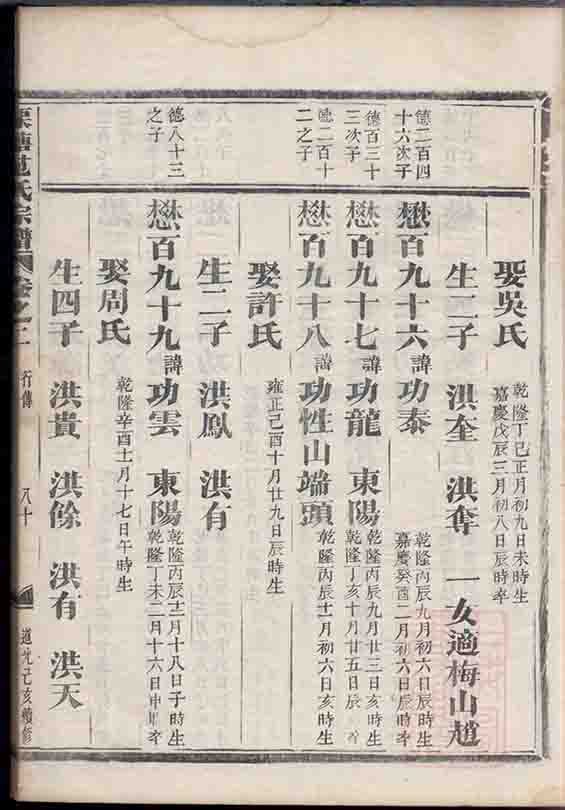 娶吳氏
乾隆丁巳正月初九日未時生
嘉慶戊辰三月初八日辰時卒
生二子 洪奎 洪奪 一女適梅山趙
德二百四
十六次子
懋百九十六諱功泰
乾隆丙辰九月初六日辰時生
嘉慶癸酉二月初六日辰時卒
德百三十
三次子
懋百九十七諱功龍 東陽
乾隆丙辰九月廿三日亥時生
乾隆丁亥十月廿五日辰
德二百十
二之子
懋百九十八諱功性山端頭
乾隆丙辰十二月初六日亥時生
娶許氏
雍正己酉十月廿九日辰時生
生二子 洪鳳 洪有
德八十三
之子
懋百九十九諱功雲 東陽
乾隆丙辰十二月十八日子時生
乾隆丁未二月十六日申時卒
娶周氏
乾隆辛酉十一月十七日午時生
生四子 洪貴 洪餘 洪有 洪天
氏宗譜 卷之二 行傳 八十 道光己亥續修